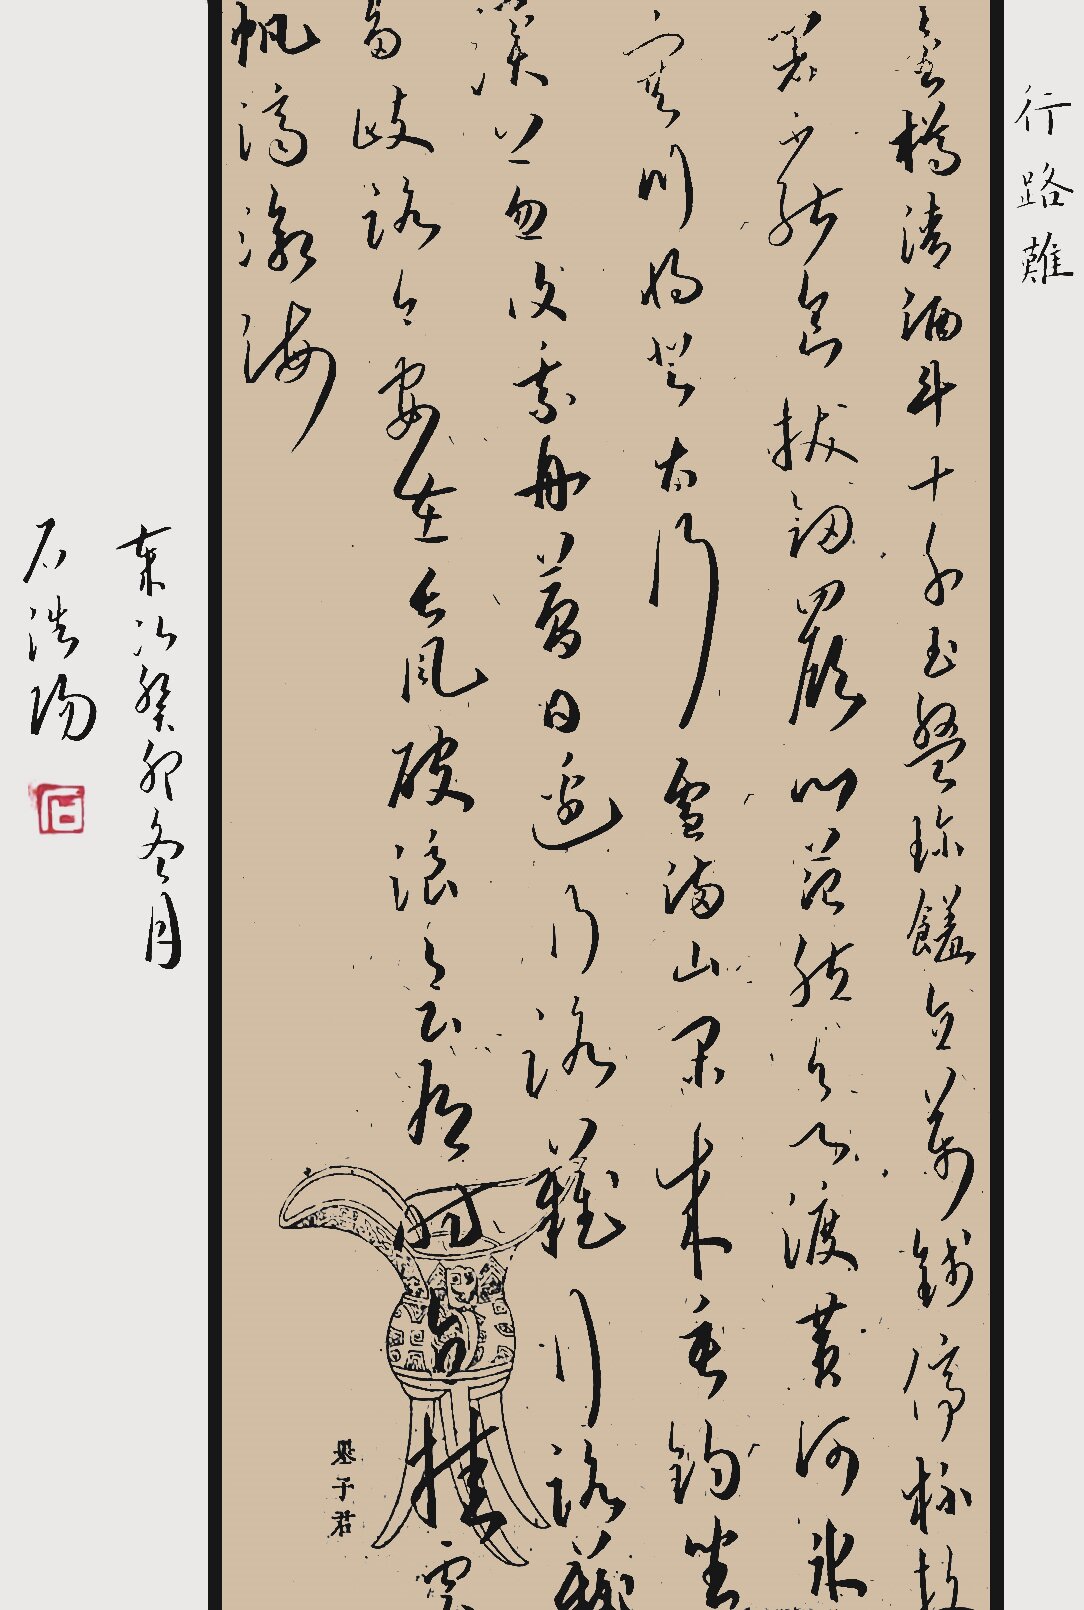 行路難
金樽清酒斗十千玉盤珍饈直萬錢停杯投
箸不能食拔劍四顧心茫然欲渡黃河冰
塞川將登太行雪滿山閑來垂釣坐
溪上忽復乘舟夢日邊行路難行路難
多歧路今安在長風破浪會有時直掛雲
帆濟滄海
歲次癸卯冬月
石浩陽
石